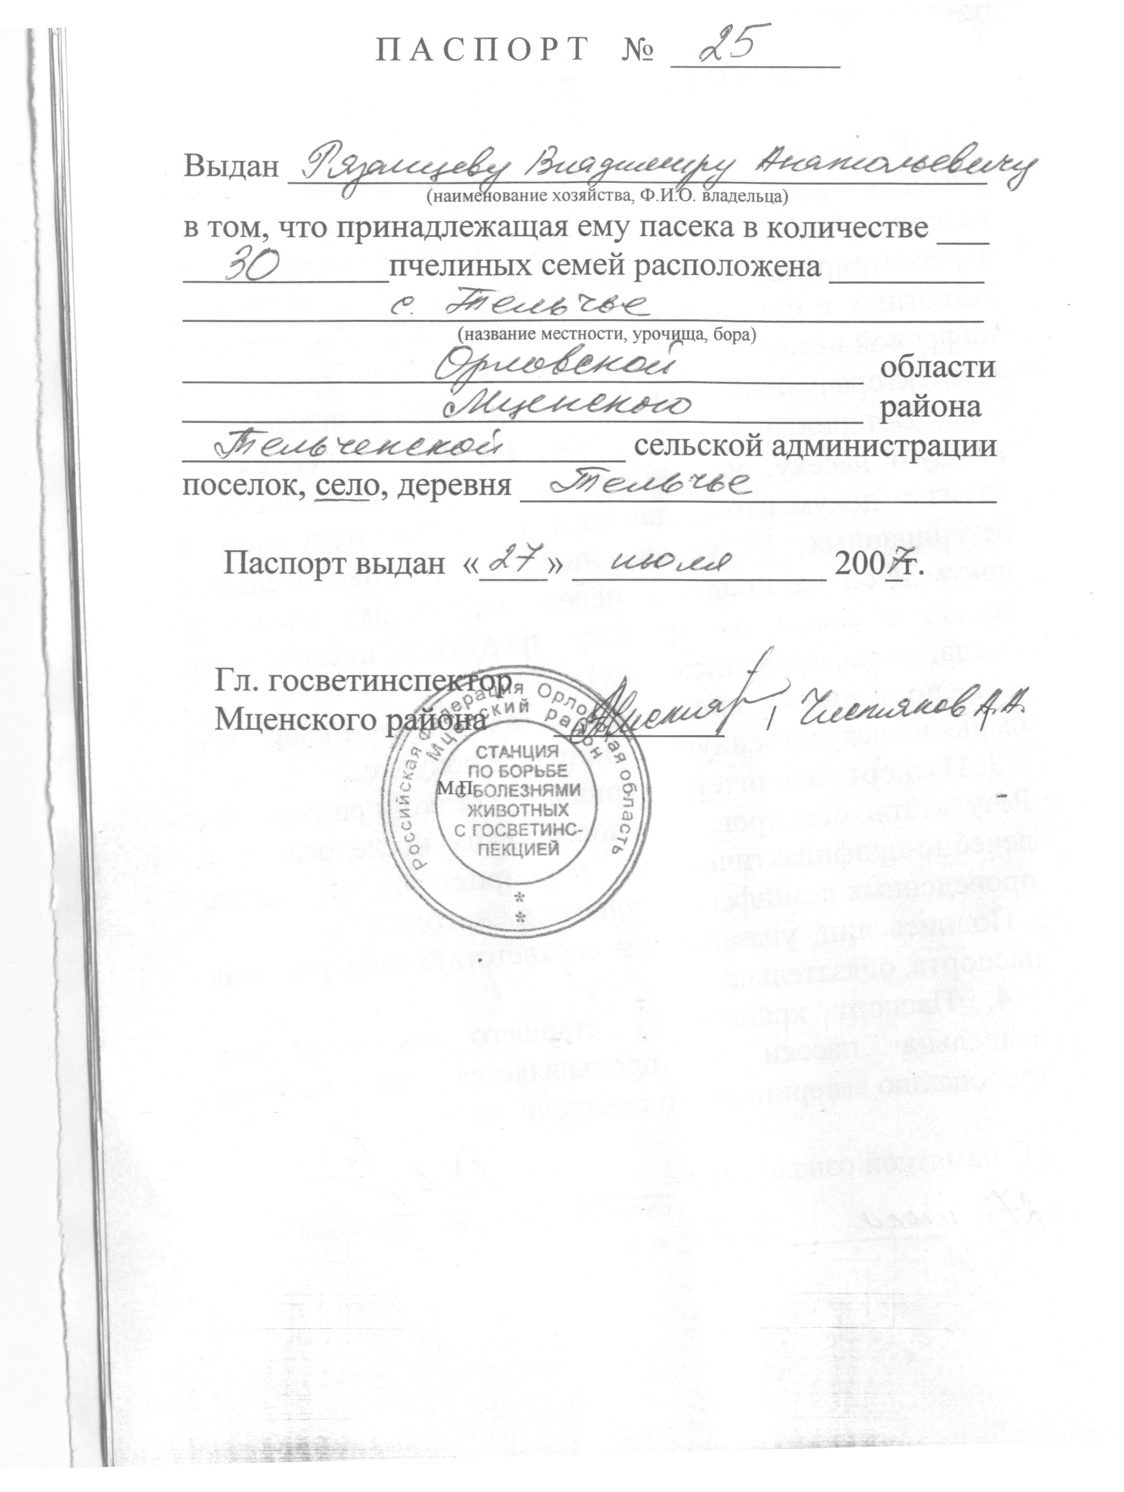 ПАСПОРТ № 25
Выдан Рязанцеву Владимиру Анатольевичу
(наименование хозяйства, Ф.И.О. владельца)
в том, что принадлежащая ему пасека в количестве
30 пчелиных семей расположена
с. Тельчье
(название местности, урочища, бора)
Орловской области
Мценского района
Тельченской сельской администрации
поселок, село, деревня Тельчье
Паспорт выдан «27» июля 2007г.
Гл. госветинспектор
Мценского района Чистяков А.А.
М.П.
Российская Федерация Орловская область
Мценский район
СТАНЦИЯ
ПО БОРЬБЕ
С БОЛЕЗНЯМИ
ЖИВОТНЫХ
С ГОСВЕТИНС-
ПЕКЦИЕЙ